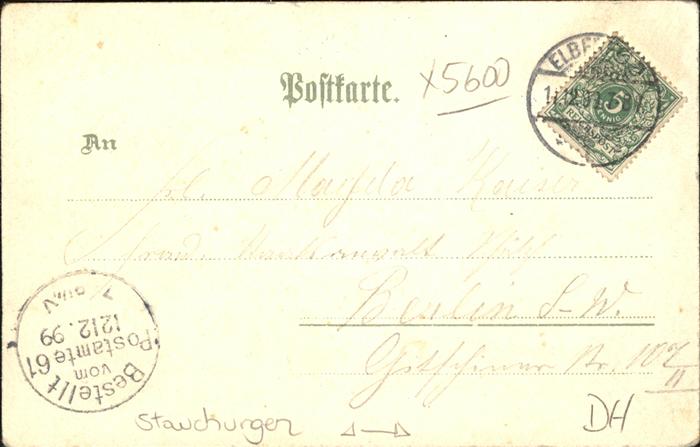 Postkarte.
x5600
ELBERF
5
PFENNIG
REICHSPOST
An
Frl. Magda Kaiser
Berlin S.W.
Gitschiner Str. 107
II
Bestellt
vom
Postamte 61
12 12. 99
Stauchungen
DH